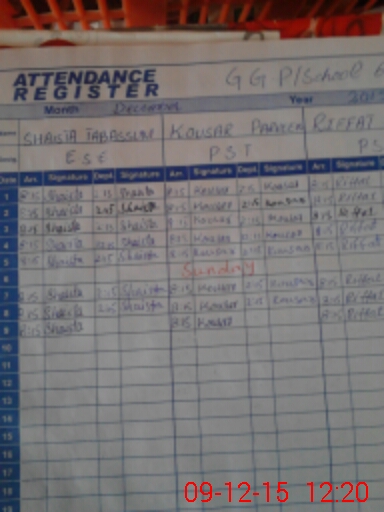 ATTENDANCE G G P/School
REGISTER
Month December Year
SHAISTA TABASSUM KOUSAR PARVEEN RIFFAT
E S E P S T P S
Date Arr. Signature Dept. Signature Arr. Signature Dept. Signature Arr. Signature
1 8:15 Shaista 2:15 Shaista 8:15 Kousar 2:15 Kousar 8:15 Riffat
2 8:15 Shaista 2:15 Shaista 8:15 Kousar 2:15 Kousar 8:15 Riffat
3 8:15 Shaista 2:15 Shaista 8:15 Kousar 2:15 Kousar 8:15 Riffat
4 8:15 Shaista 2:15 Shaista 8:15 Kousar 2:15 Kousar 8:15 Riffat
5 8:15 Shaista 2:15 Shaista 8:15 Kousar 2:15 Kousar 8:15 Riffat
6 Sunday
7 8:15 Shaista 2:15 Shaista 8:15 Kousar 2:15 Kousar 8:15 Riffat
8 8:15 Shaista 2:15 Shaista 8:15 Kousar 2:15 Kousar 8:15 Riffat
9 8:15 Shaista 8:15 Kousar 8:15 Riffat
10
11
12
13
14
15
16
17
18
09-12-15 12:20